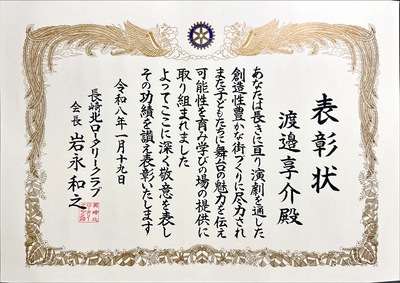 表彰状
渡邉享介殿
あなたは長きに亘り演劇を通した
創造性豊かな街づくりに尽力され
また子どもたちに舞台の魅力を伝え
可能性を育み学びの場の提供に
取り組まれました
よってここに深く敬意を表し
その功績を讃え表彰いたします
令和八年一月十九日
長崎北ロータリークラブ
会長 岩永和之